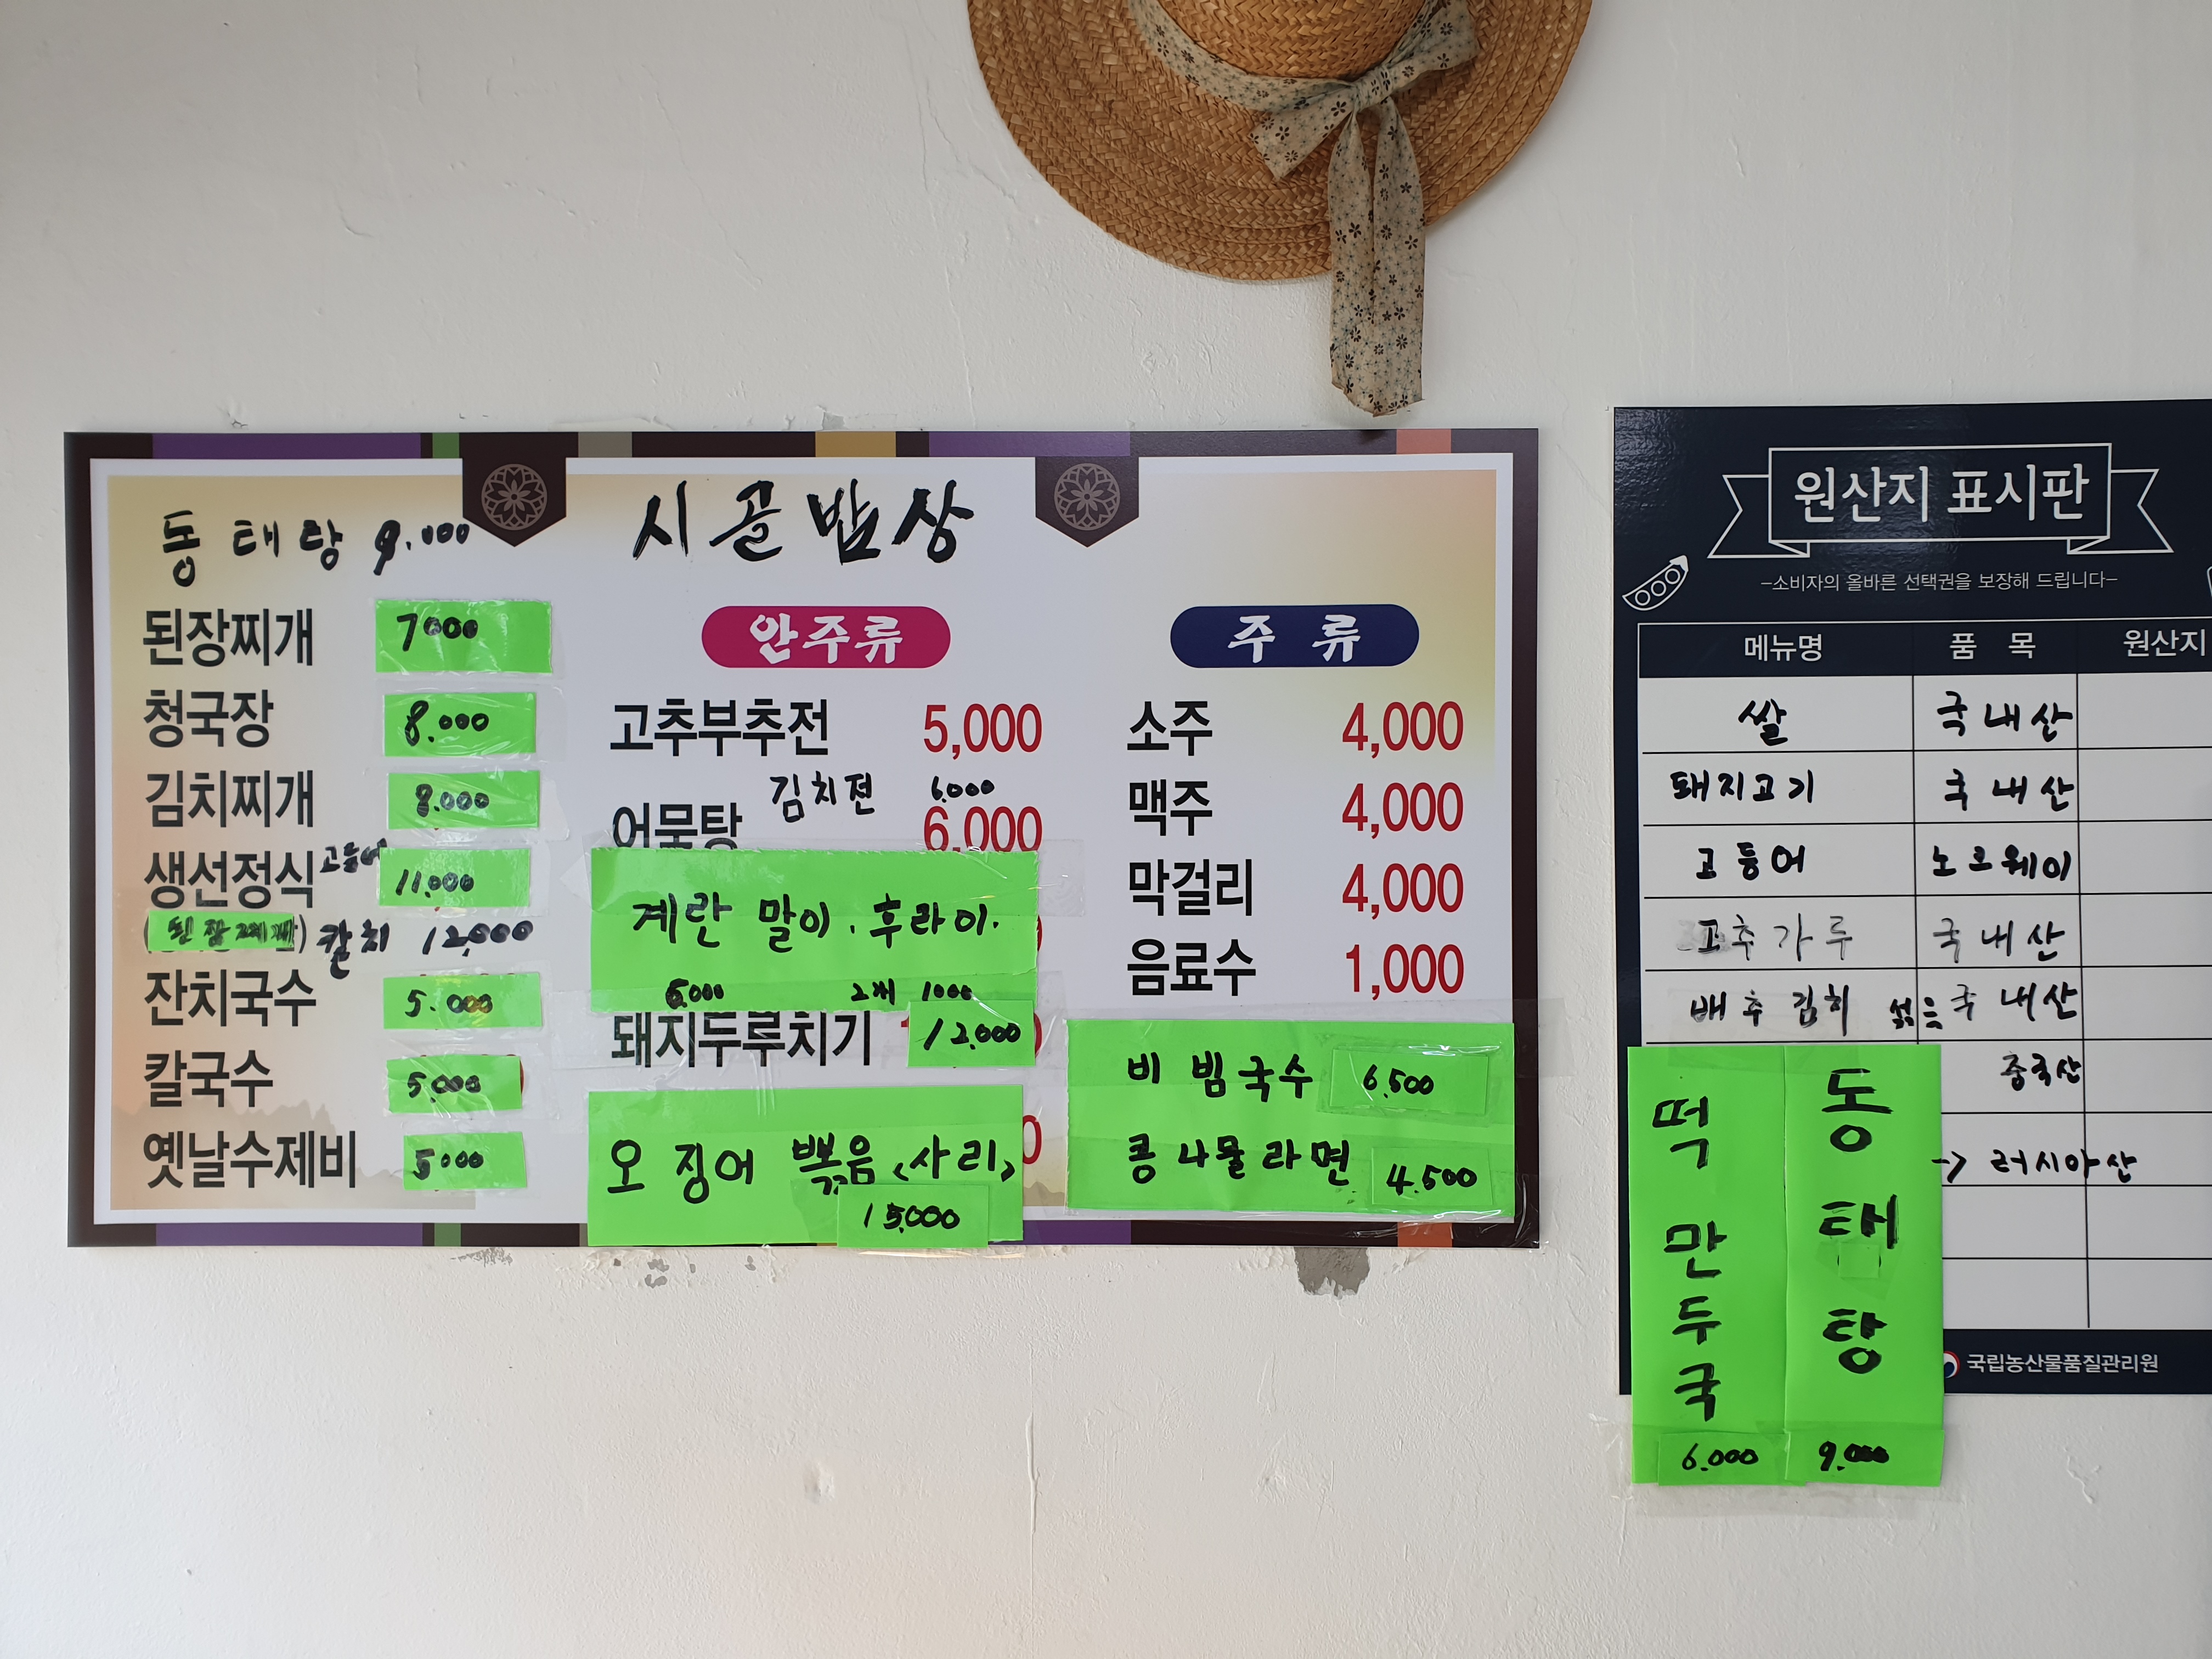 시골밥상
동태탕 9.000
된장찌개 7000
청국장 8.000
김치찌개 8.000
생선정식 고등어 11.000
(된장찌개) 칼치 12,000
잔치국수 5.000
칼국수 5.000
옛날수제비 5000
안주류
고추부추전 5,000
김치전 6.000
어묵탕 6,000
계란 말이. 후라이.
6.000 2개 1000
돼지두루치기 12.000
오징어 볶음 <사리>
15.000
주류
소주 4,000
맥주 4,000
막걸리 4,000
음료수 1,000
비빔국수 6.500
콩나물라면 4.500
원산지 표시판
-소비자의 올바른 선택권을 보장해 드립니다-
메뉴명 품목 원산지
쌀 국내산
돼지고기 국내산
고등어 노르웨이
고추가루 국내산
배추김치 섞음 국내산
중국산
-> 러시아산
떡만두국 6.000
동태탕 9.000
국립농산물품질관리원